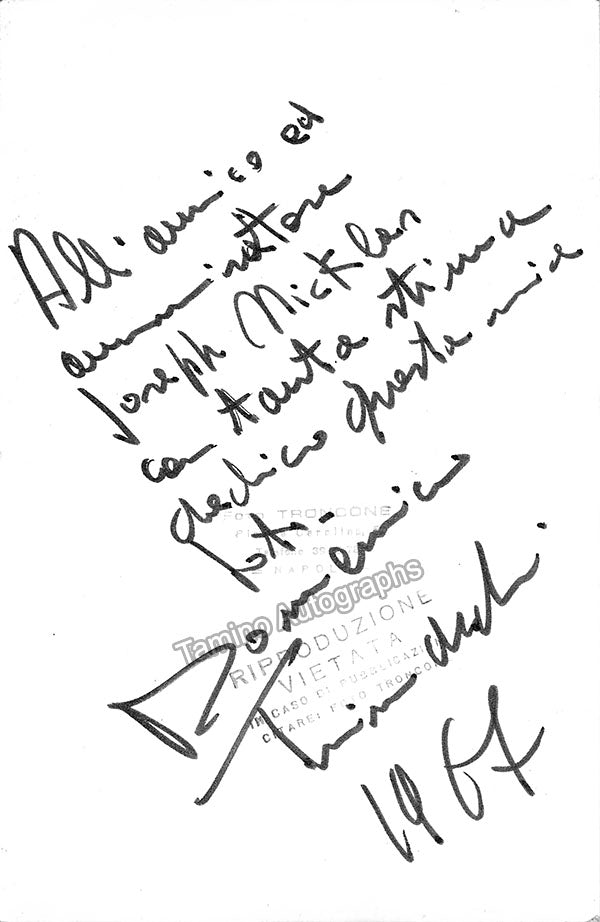 All'amico ed
ammiratore
Joseph Nickler
con tanta stima
dedico questa mia
foto.
FOTO TRONCONE
NAPOLI
Domenico
Trimarchi.
1967
Tamino Autographs
RIPRODUZIONE
VIETATA
IN CASO DI PUBBLICAZIONE
CITARE: FOTO TRONCONE